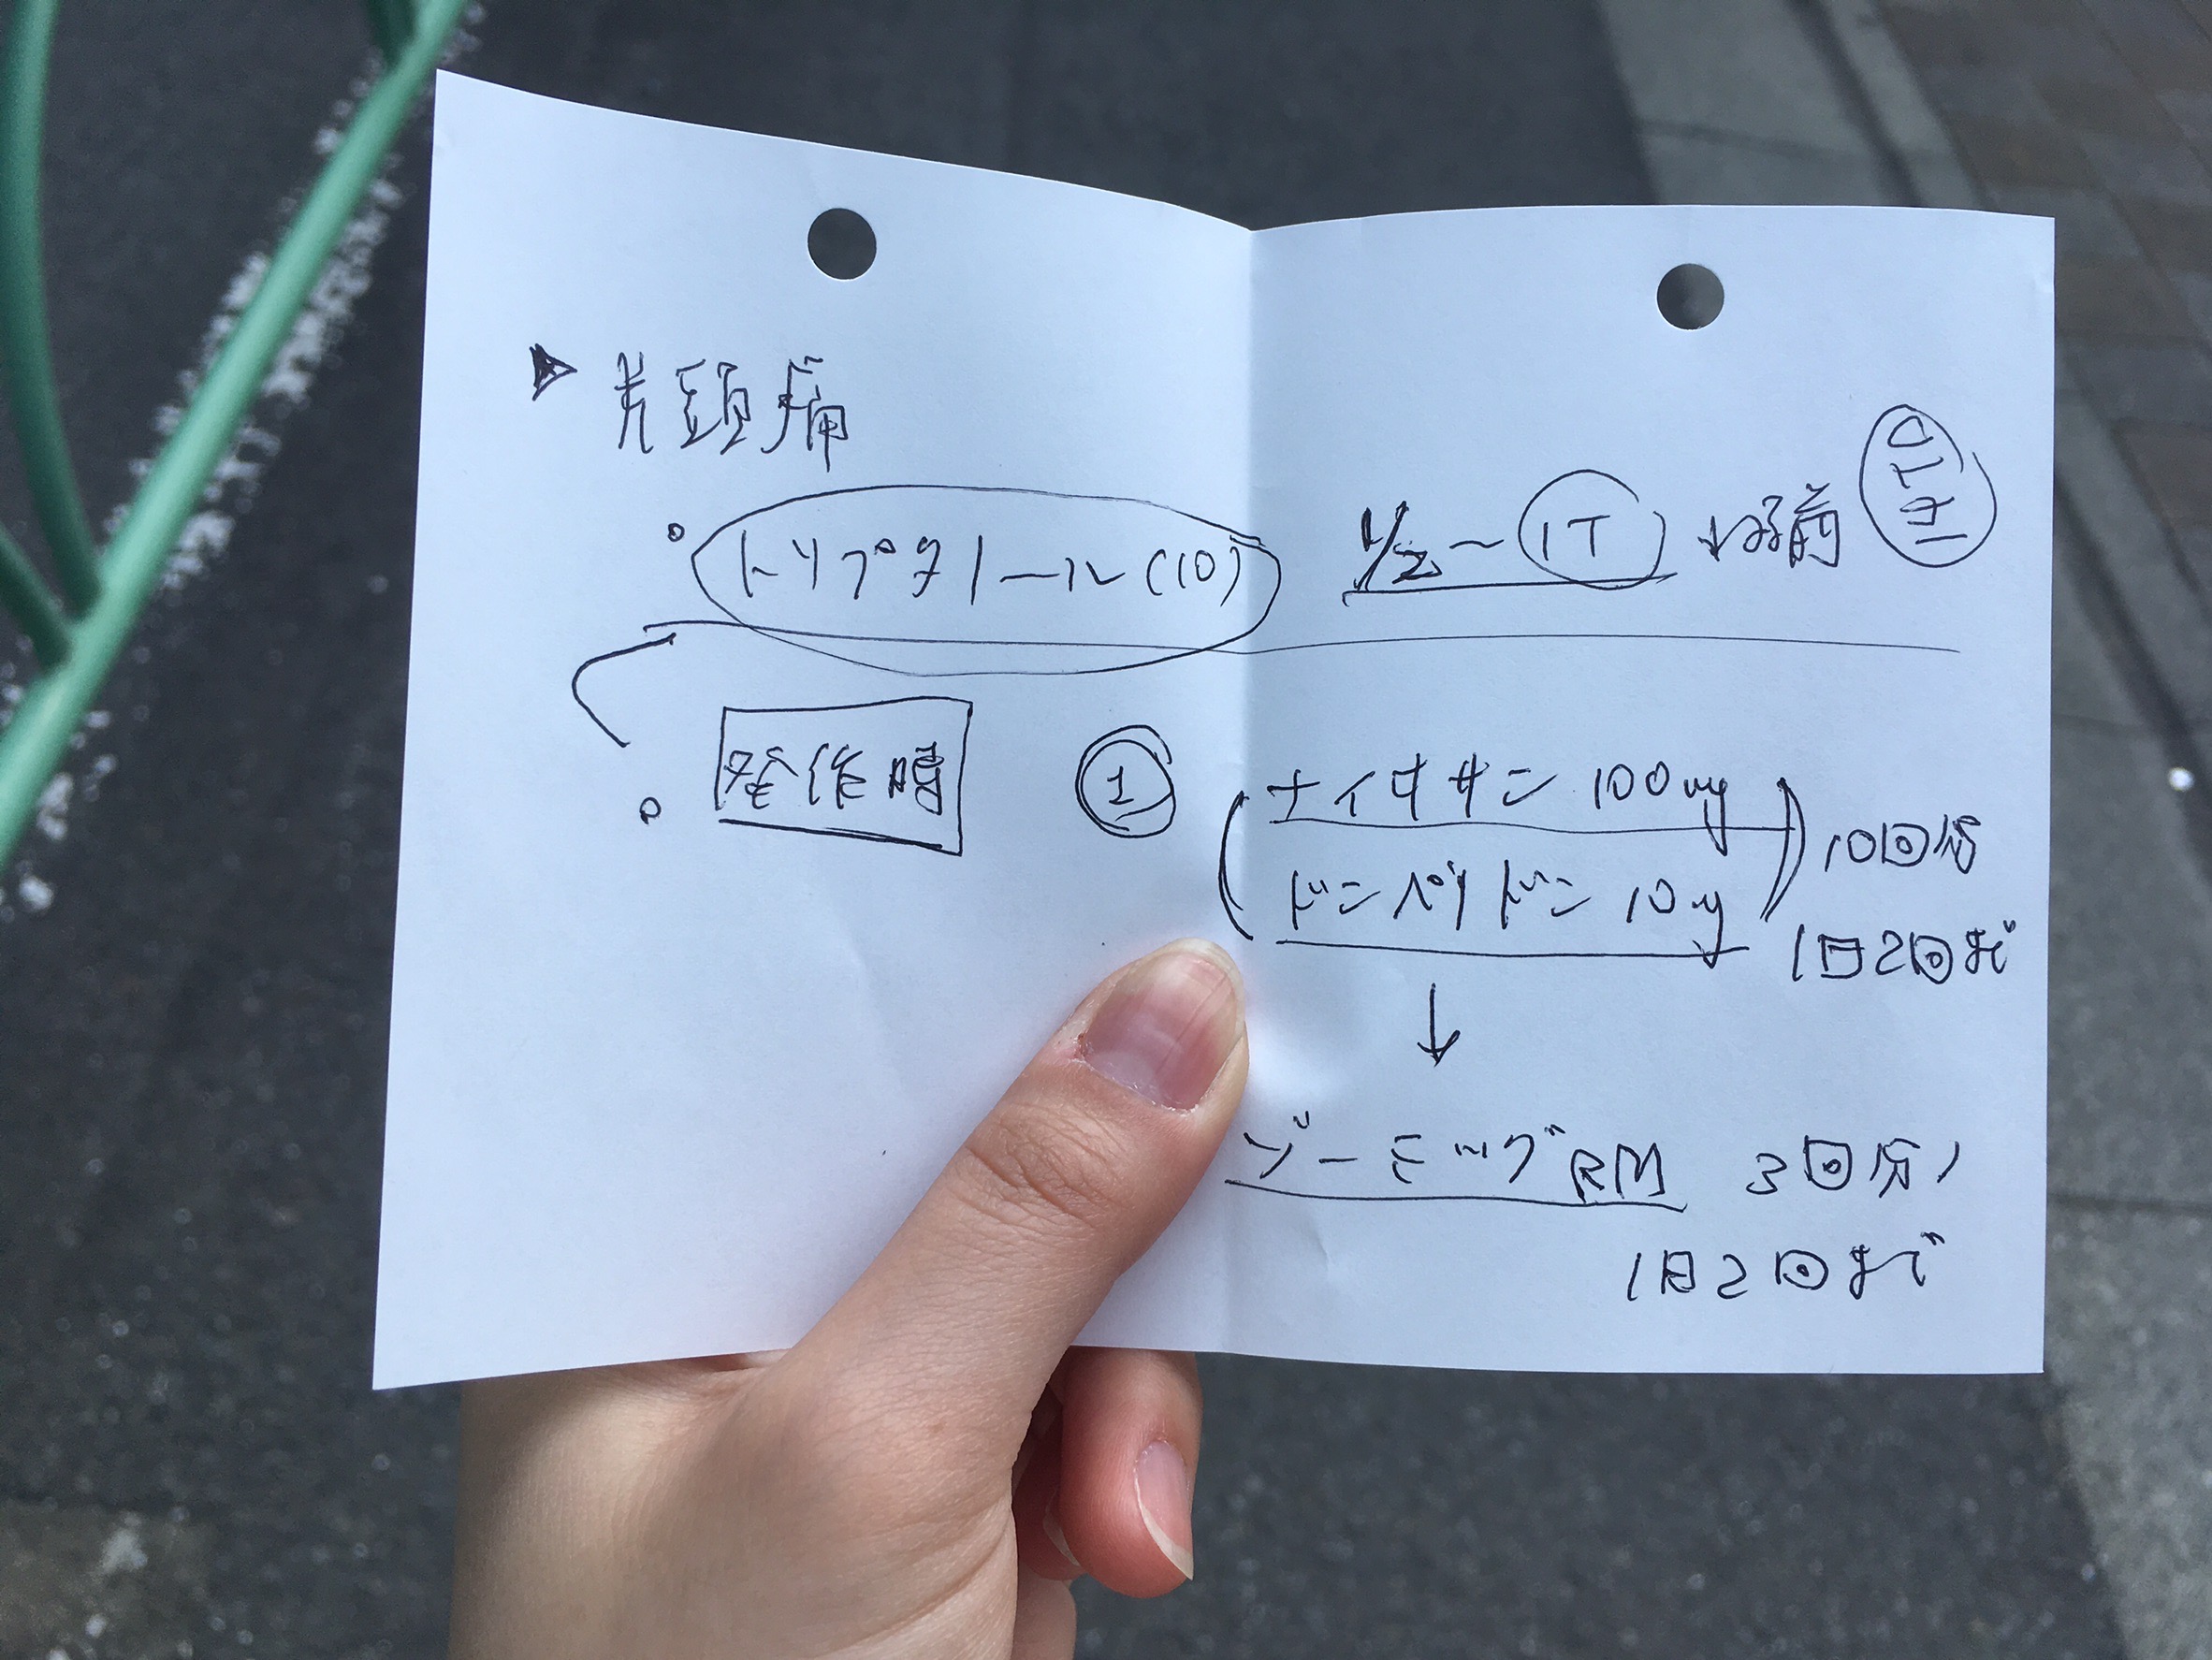 ▶ 片頭痛
トリプタノール(10) 1/2〜1T 前
発作時 ① ナイキサン 100mg
ドンペリドン 10mg
10回分
1日2回まで
↓
ゾーミッグRM 3回分
1日2回まで